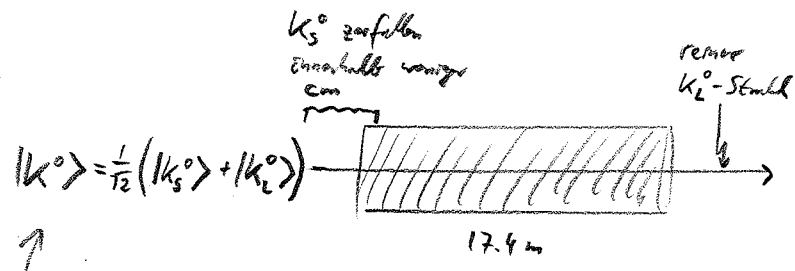 K_S^0 zerfallen
innerhalb weniger
cm
reiner
K_L^0-Strahl
|K^0> = 1/√2 (|K_S^0> + |K_L^0>)
17.4 m